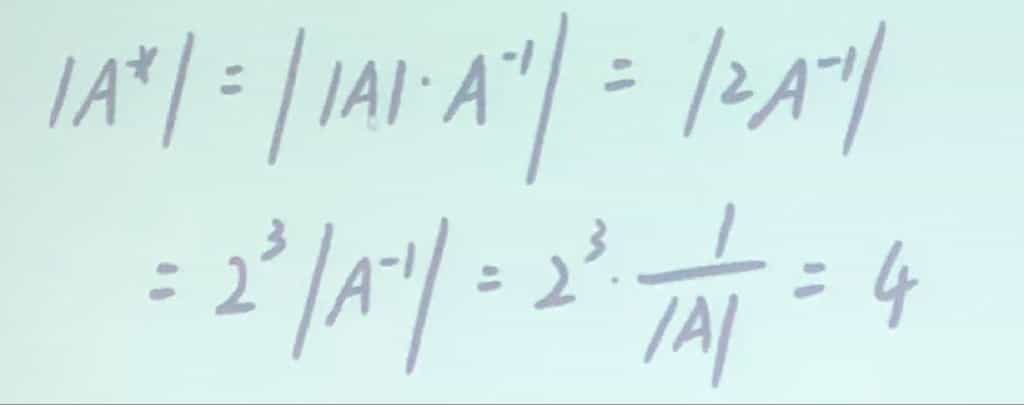 |A*| = ||A|·A⁻¹| = |2A⁻¹|
= 2³|A⁻¹| = 2³·1/|A| = 4